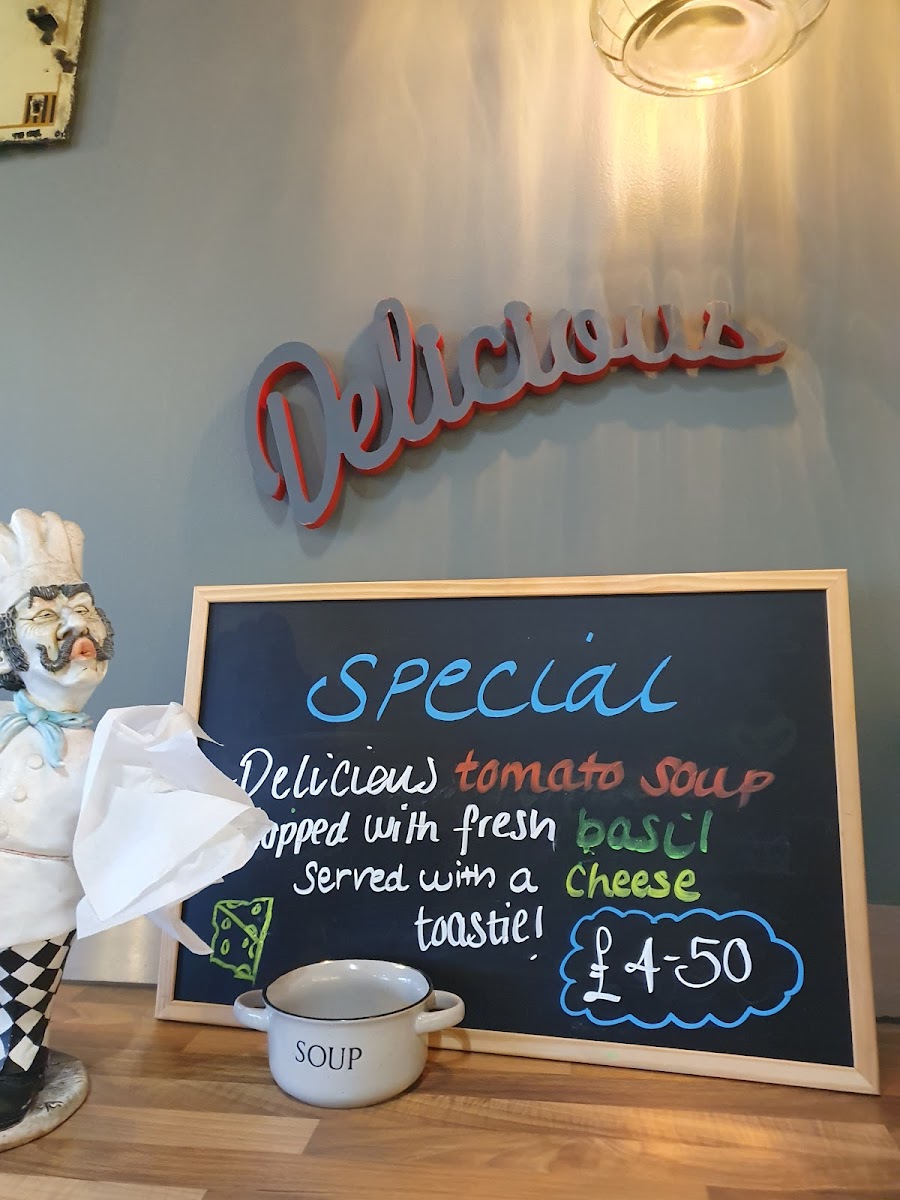 Delicious
Special
Delicious tomato soup
topped with fresh basil
Served with a cheese
toastie!
£4-50
SOUP